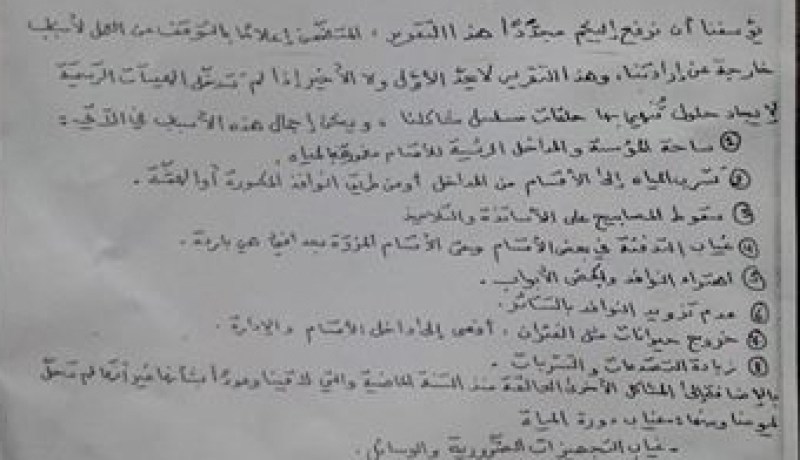 يؤسفنا أن نرفع إليكم مجدّدًا هذا التقرير، المتضمّن إعلامًا بالتوقف عن العمل لأسباب
خارجة عن إرادتنا، وهذا التقرير لا يعدّ الأوّل ولا الأخير إذا لم تتدخّل الهيئات الرسميّة
لإيجاد حلول تُنهي بها حلقات مسلسل مشاكلنا، ويمكن إجمال هذه الأسباب في الآتي:
① ساحة المؤسسة والمداخل الرئيسية للأقسام مغمورة بالمياه.
② تسرب المياه إلى الأقسام من المداخل أو من طريق النوافذ المكسورة أو
③ سقوط المصابيح على الأساتذة والتلاميذ
④ غياب التدفئة في بعض الأقسام وحتى الأقسام المزوّدة بمدافئ هي باردة.
⑤ اهتراء النوافذ وبعض الأبواب.
⑥ عدم تزويد النوافذ بالستائر.
⑦ خروج حيوانات مثل الفئران، أفعى إلى داخل الأقسام والإدارة.
⑧ زيادة التصدعات والتسربات.
بالإضافة إلى المشاكل الأخرى العالقة منذ السنة الماضية والتي تلقينا وعودًا بشأنها غير أنها لم تحلّ
ليومنا ومنها: غياب دورة المياه
- غياب التجهيزات الضرورية والوسائل.